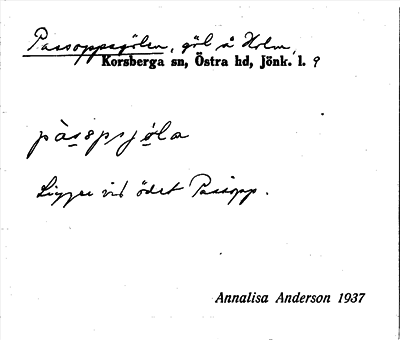 Passoppsgölen, göl å Holm,
Korsberga sn, Östra hd, Jönk. l. 9
pàsɘpsjọla
Ligger vid ödet Passopp.
Annalisa Anderson 1937